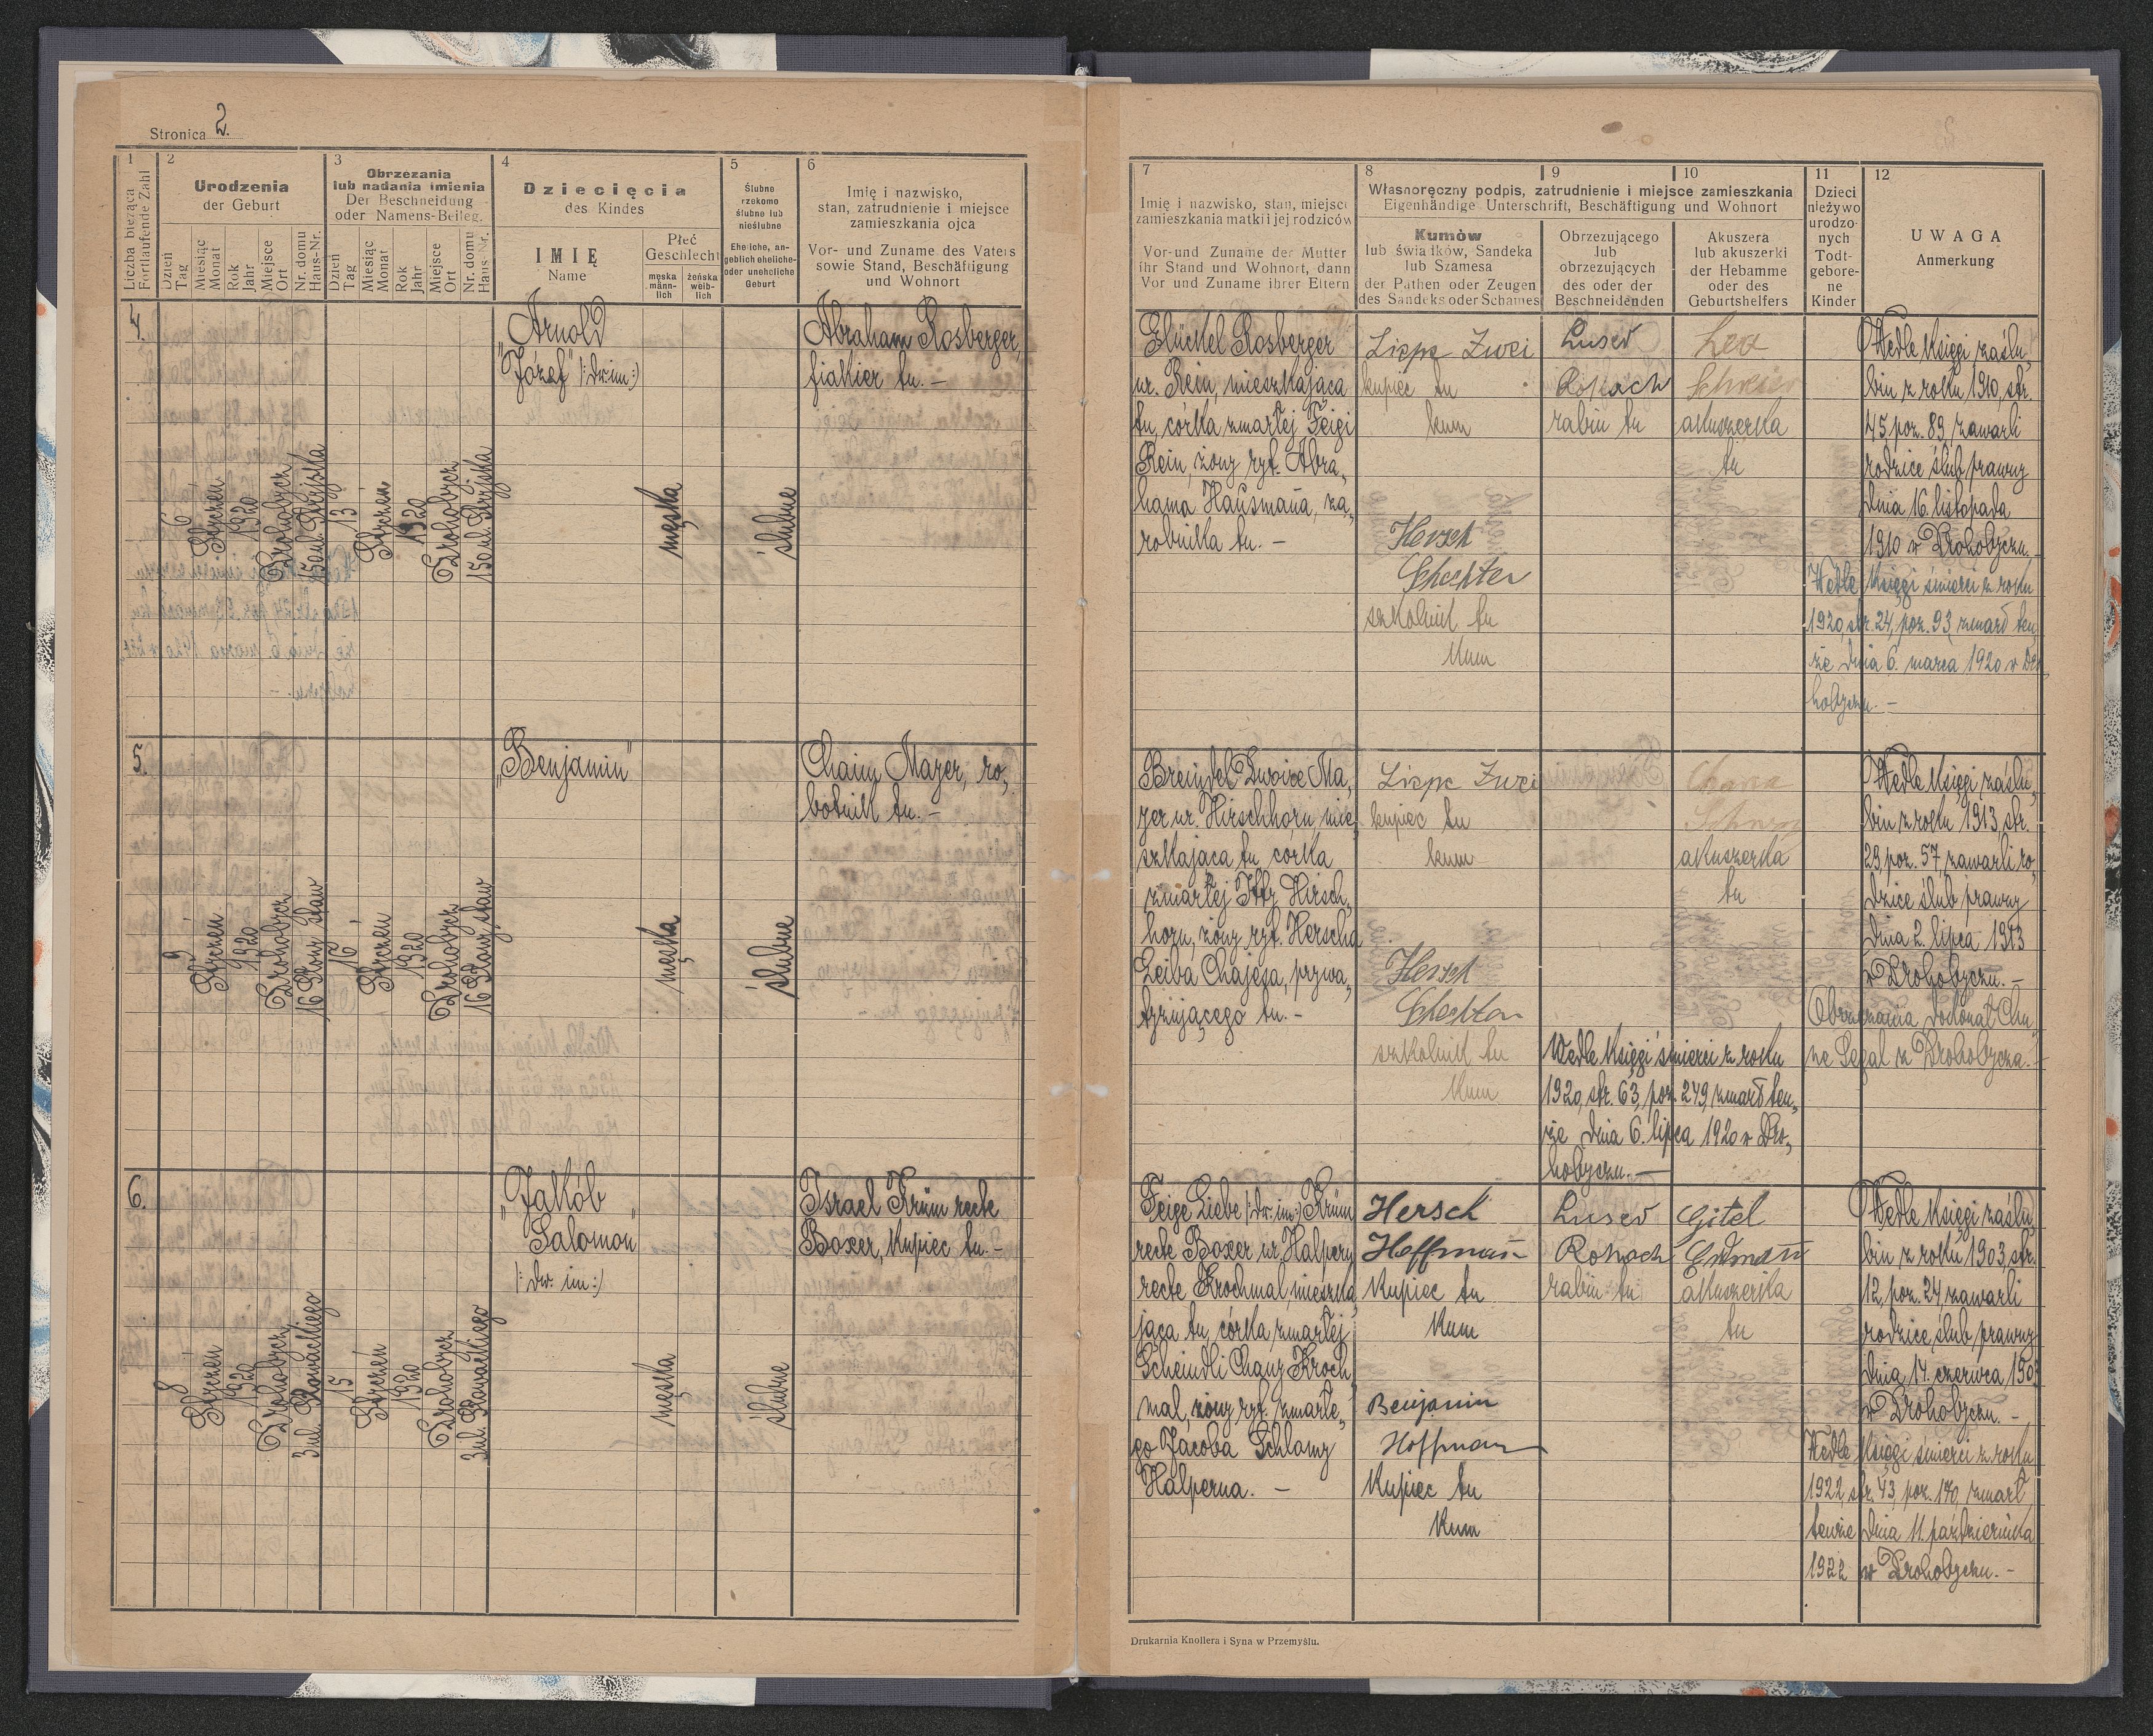 Stronica 2.
1
Liczba bieżąca
Fortlaufende Zahl
2
Urodzenia
der Geburt
Dzień
Tag
Miesiąc
Monat
Rok
Jahr
Miejsce
Ort
Nr. domu
Haus-Nr.
3
Obrzezania
lub nadania imienia
Der Beschneidung
oder Namens-Beileg.
Dzień
Tag
Miesiąc
Monat
Rok
Jahr
Miejsce
Ort
Nr. domu
Haus-Nr.
4
Dziecięcia
des Kindes
IMIĘ
Name
Płeć
Geschlecht
męska
männ-
lich
żeńska
weib-
lich
5
Ślubne
rzekomo
ślubne lub
nieślubne
Eheliche, an-
geblich eheliche-
oder uneheliche
Geburt
6
Imię i nazwisko,
stan, zatrudnienie i miejsce
zamieszkania ojca
Vor- und Zuname des Vaters
sowie Stand, Beschäftigung
und Wohnort
7
Imię i nazwisko, stan, miejsce
zamieszkania matki i jej rodziców
Vor-und Zuname der Mutter
ihr Stand und Wohnort, dann
Vor und Zuname ihrer Eltern
8
9
10
Własnoręczny podpis, zatrudnienie i miejsce zamieszkania
Eigenhändige Unterschrift, Beschäftigung und Wohnort
Kumów
lub świadków, Sandeka
lub Szamesa
der Pathen oder Zeugen
des Sandeks oder Schames
Obrzezującego
lub
obrzezujących
des oder der
Beschneidenden
Akuszera
lub akuszerki
der Hebamme
oder des
Geburtshelfers
11
Dzieci
nieżywo
urodzo-
nych
Todt-
gebore-
ne
Kinder
12
UWAGA
Anmerkung
4.
6
Styczeń
1920
Drohobycz
150 ul. Stryjska
13
Styczeń
1920
Drohobycz
150 ul. Stryjska
„Arnold
Józef" /:dw. im:/
męska
ślubne
Abraham Rosberger,
fiakier tu. –
Glückel Rosberger
ur. Rein, mieszkająca
tu, córka zmarłej Feigi
Rein, żony ryt. Abra„
hama Hausmana, za„
robnika tu. –
Lippe Zwei
kupiec tu
kum
Hersch
Schechter
szkolnik tu
Kum
Luser
Rokach
rabin tu
Lea
akuszerka
tu
Wedle Księgi zaślu„
bin z roku 1910, str.
45 poz. 89, zawarli
rodzice ślub prawny
dnia 16. listopada
1910 w Drohobyczu. –
Wedle Księgi śmierci z roku
1920, str. 24, poz. 93, zmarł ten„
że dnia 6. marca 1920 w Dro„
hobyczu. –
5.
9
Styczeń
1920
Drohobycz
16 Stary staw
16
Styczeń
1920
Drohobycz
16 Stary staw
„Benjamin"
męska
ślubne
Chaim Mayer, ro„
botnik tu. –
Breindel Dwoire Ma„
yer ur. Hirschhorn, mie„
szkająca tu, córka
zmarłej Itty Hirsch„
horn, żony ryt. Herscha
Leiba Chajesa, prywa„
tyzującego tu. –
Lippe Zwei
kupiec tu
kum
Hersch
Schechter
szkolnik tu
Kum
Chana
akuszerka
tu
Wedle Księgi zaślu„
bin z roku 1913, str.
29, poz. 57, zawarli ro„
dzice ślub prawny
dnia 2. lipca 1913
w Drohobyczu. –
Obrzezania dokonał Chu„
ne Segal z Drohobycza. –
Wedle Księgi śmierci z roku
1920, str. 63, poz. 249, zmarł ten„
że dnia 6. lipca 1920 w Dro„
hobyczu. –
6.
8
Styczeń
1920
Drohobycz
3 ul. Słowackiego
15
Styczeń
1920
Drohobycz
3 ul. Słowackiego
„Jakób
Salomon"
/:dw. im:/
męska
ślubne
Israel Krüm recte
Boxer, Kupiec tu. –
Feige Liebe /:dw. im:/ Krüm
recte Boxer ur. Halpern
recte Krochmal, mieszka„
jąca tu, córka zmarłej
Scheindli Chany Kroch„
mal, żony ryt. zmarłe„
go Jacoba Schlomy
Halperna. –
Hersch
Hoffman
Kupiec tu
Kum
Benjamin
Hoffman
Kupiec tu
Kum
Luser
Rokach
rabin tu
Gitel
Erdmann
akuszerka
tu
Wedle Księgi zaślu„
bin z roku 1903, str.
12, poz. 24, zawarli
rodzice ślub prawny
dnia 17. czerwca 1903
w Drohobyczu. –
Wedle Księgi śmierci z roku
1922, str. 43, poz. 170, zmarł
tenże dnia 11. października
1922 w Drohobyczu. –
Drukarnia Knollera i Syna w Przemyślu.